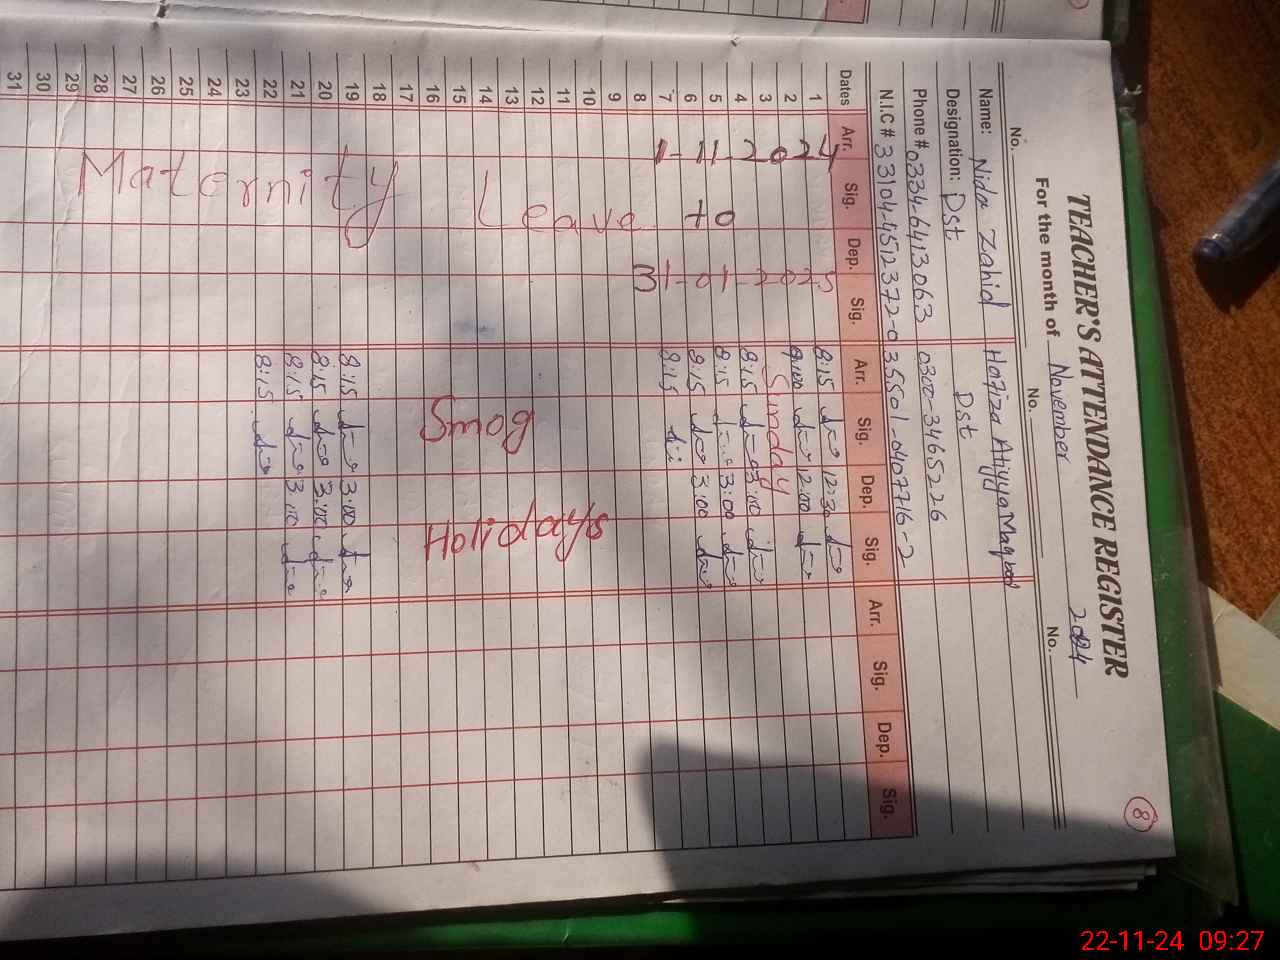 8
TEACHER'S ATTENDANCE REGISTER
For the month of November 2024
No. No. No.
Name: Nida Zahid Hafiza Atiyya Maqbool
Designation: Dst Dst
Phone # 0334-6413063 0300-3465226
N.I.C # 33104-4512372-0 35501-0407716-2
Dates Arr. Sig. Dep. Sig. Arr. Sig. Dep. Sig. Arr. Sig. Dep. Sig.
1 8:15 12:30
2 12:00
3 Sunday
4 8:15 3:00
5 8:15 3:00
6 8:15 3:00
7 8:15
8
9
10
11
12
13
14
15
16
17
18
19 8:15 3:00
20 8:15 3:00
21 8:15 3:00
22 8:15
23
24
25
26
27
28
29
30
31
1-11-2024
to
31-01-2025
Maternity Leave
Smog Holidays
22-11-24 09:27